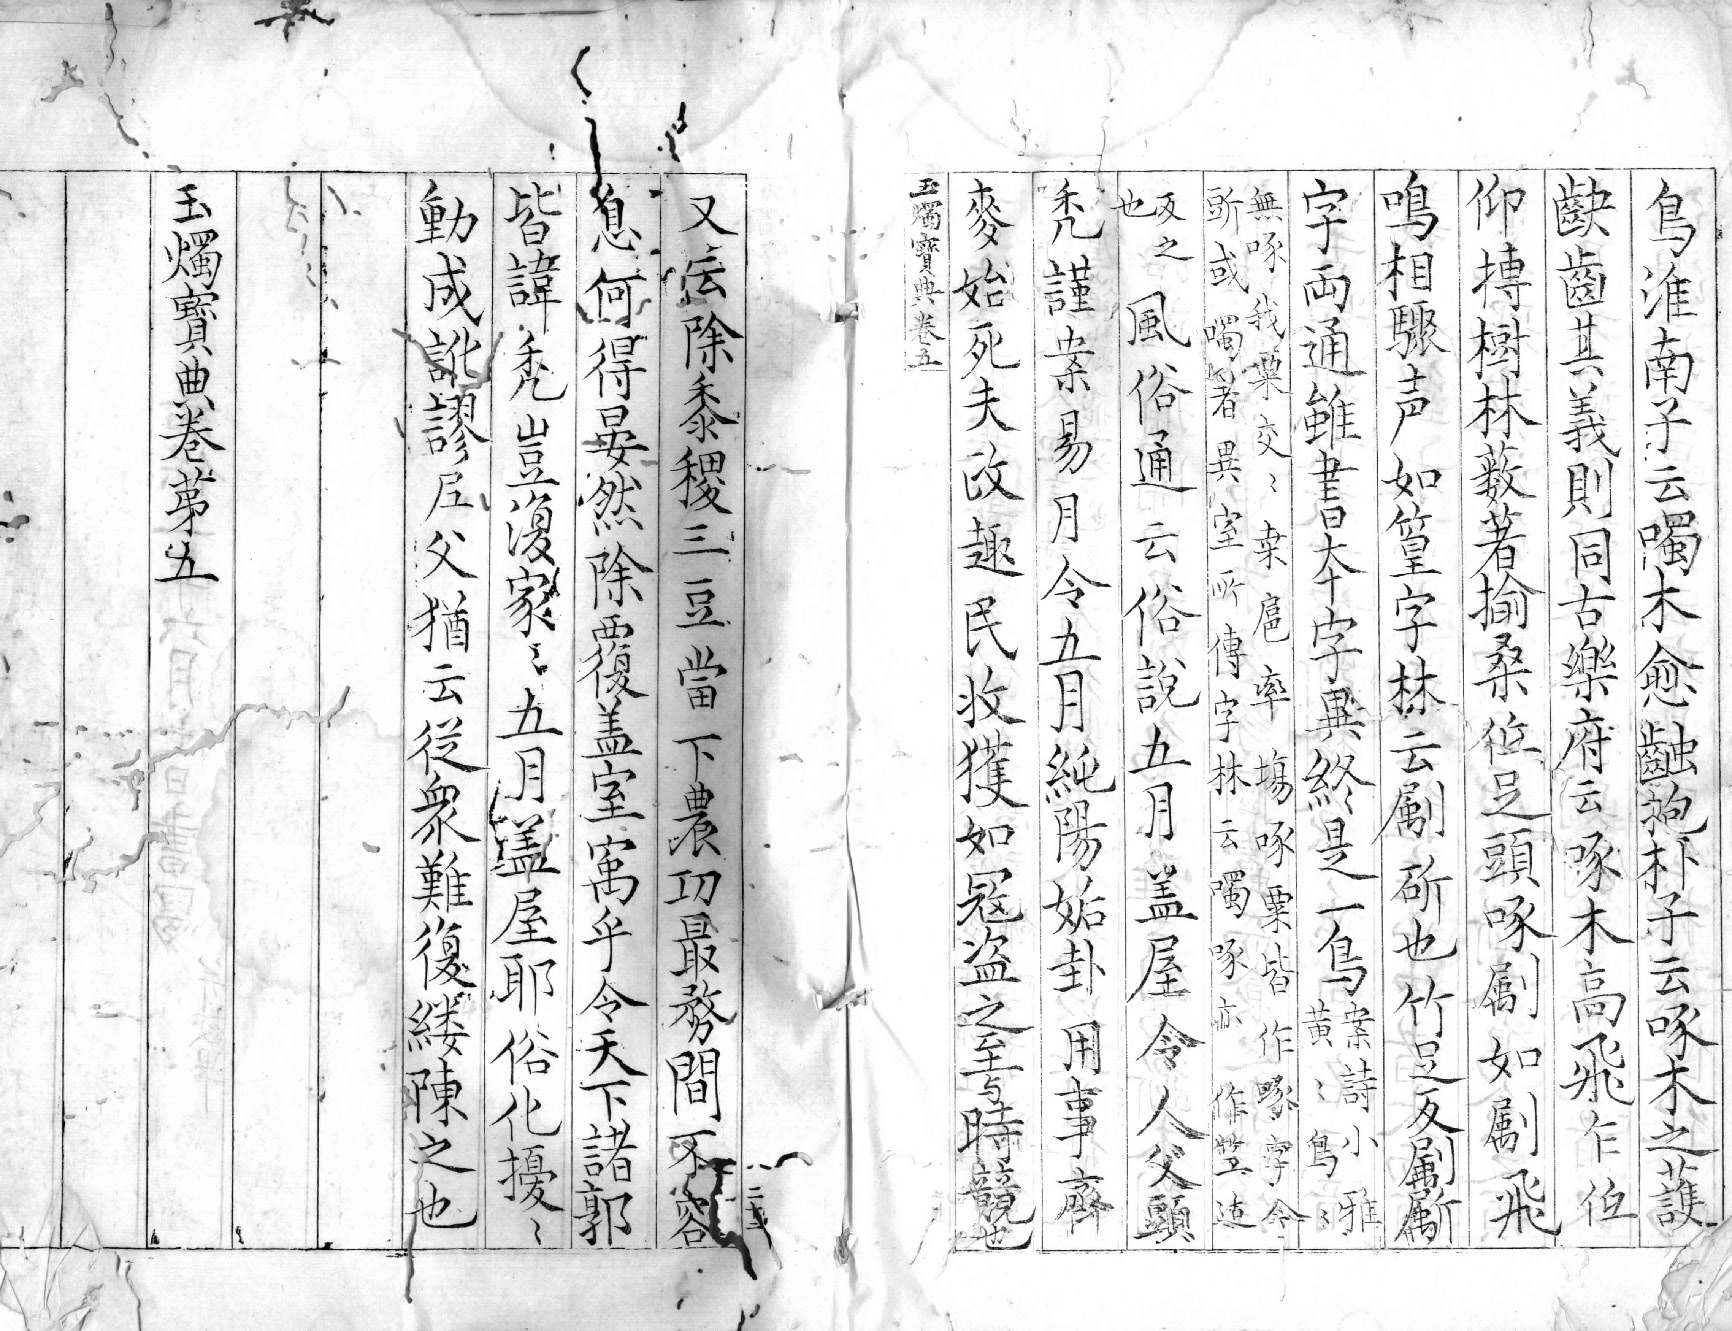 鳥淮南子云噣木愈齲抱朴子云啄木之護
齾齒其義則同古樂府云啄木高飛乍低
仰摶樹林藪著揄桑低足頭啄劚如劚飛
鳴相驟声如篁字林云劚斫也竹足反劚斸
字両通雖書夲字異終是一鳥案詩小雅
黄〻鳥〻
無啄我粟交〻桒扈率場啄粟皆作啄字今
斲或噣著異室所傳字林云噣啄亦作竺速
反之
也風俗通云俗說五月盖屋令人父頭
禿謹案易月令五月純陽姤卦用事齊
麥始死夫政趣民收獲如寇盗之至与時競也
玉燭寶典卷五
又云除黍稷三豆當下農㓛最務間不容
息何得晏然除覆盖室寓乎令天下諸郭
皆諱禿豈復家〻五月盖屋耶俗化擾〻
動成訛謬尼父猶云從衆難復縷陳之也
玉燭寶典卷苐五